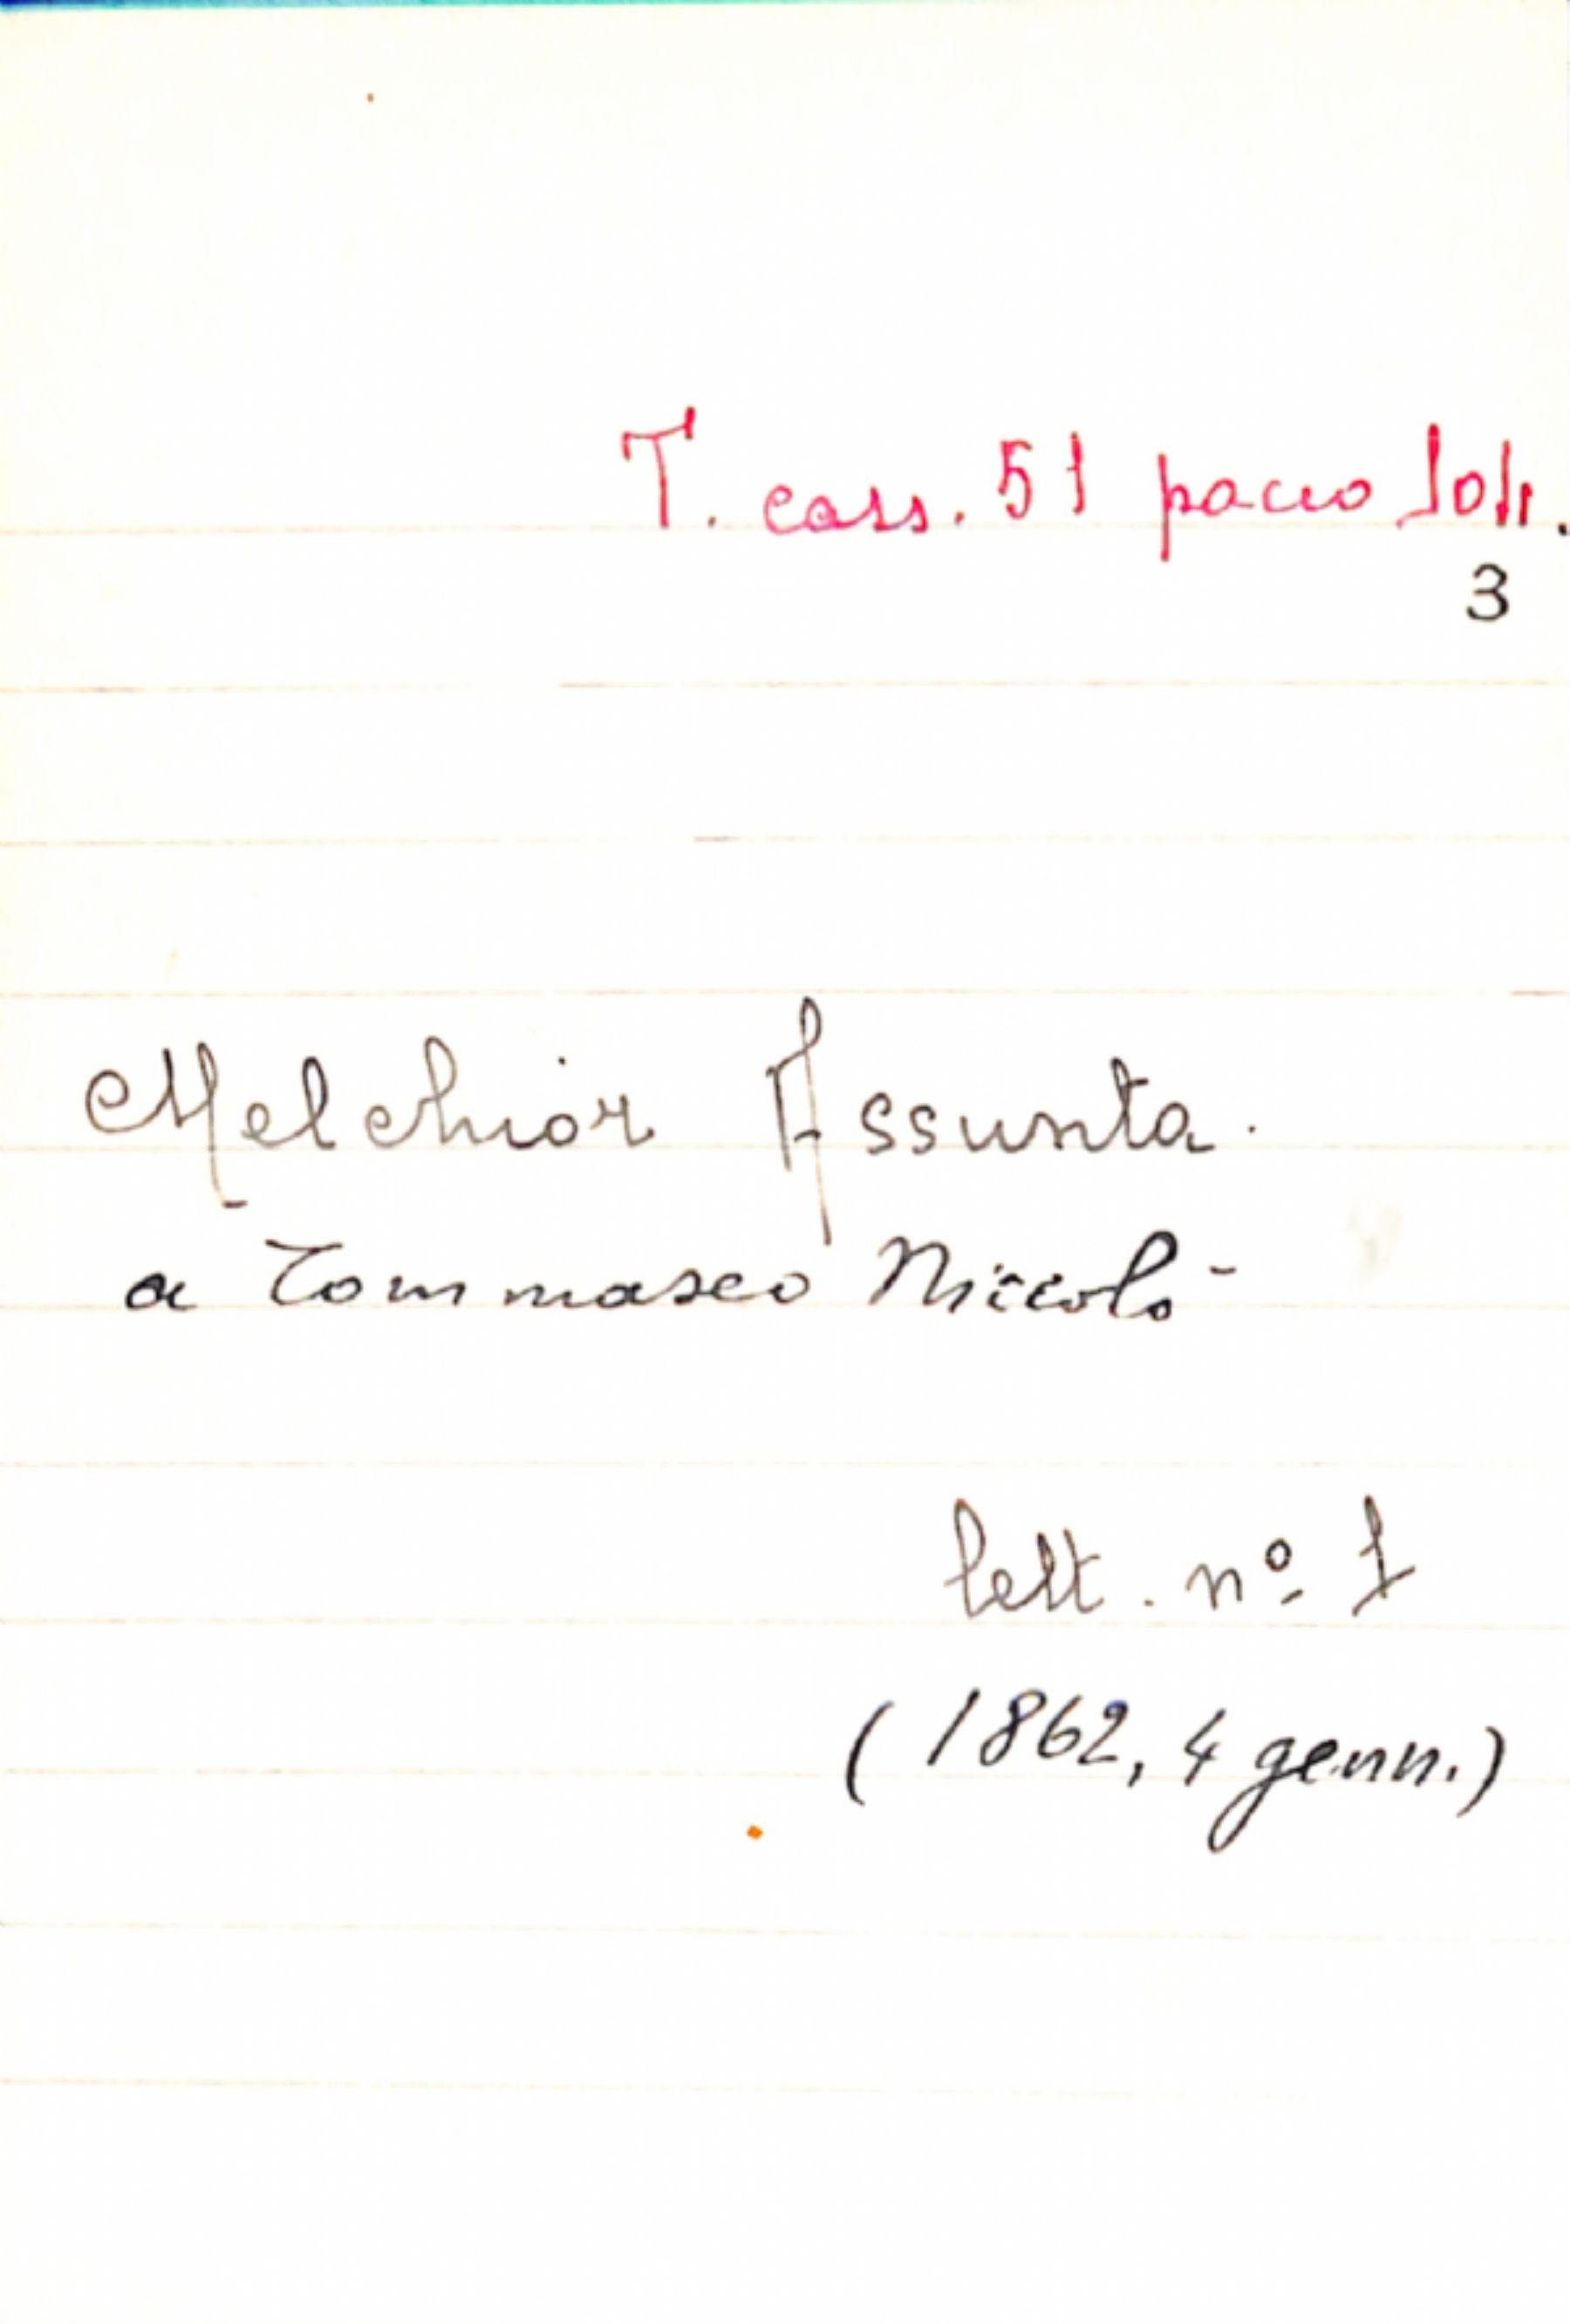 T. cass. 51 pacco
3
Melchior Assunta.
a Tommaseo Niccolò -
lett. nº 1
(1862, 4 genn.)